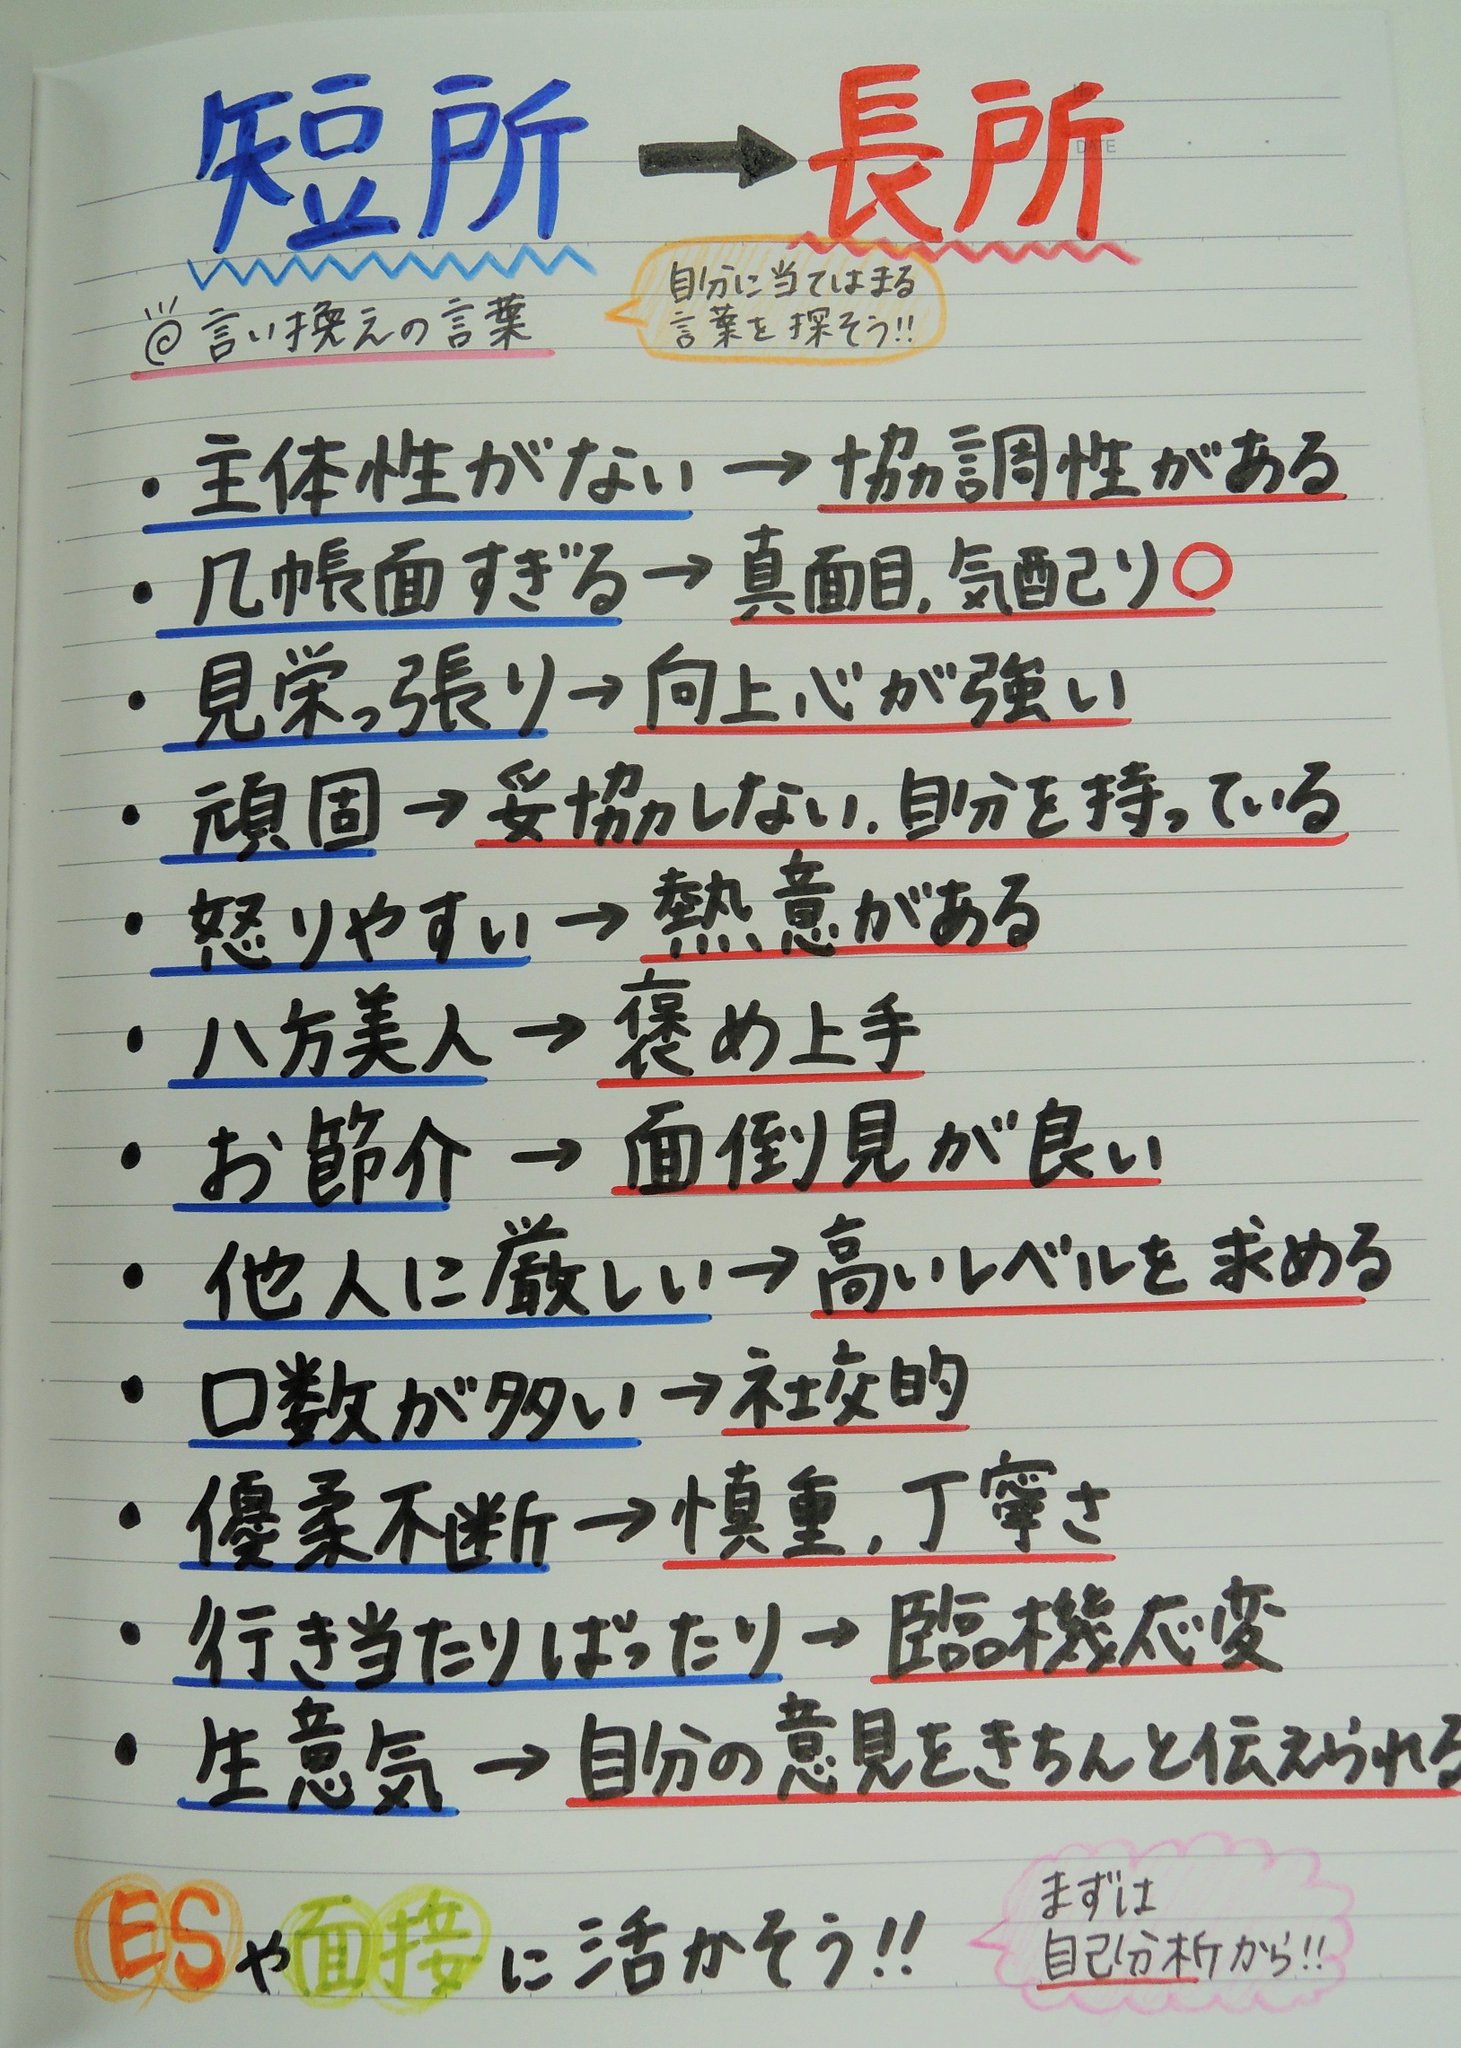 短所→長所
◎言い換えの言葉
自分に当てはまる
言葉を探そう!!
・主体性がない→協調性がある
・几帳面すぎる→真面目,気配り○
・見栄っ張り→向上心が強い
・頑固→妥協しない.自分を持っている
・怒りやすい→熱意がある
・八方美人→褒め上手
・お節介→面倒見が良い
・他人に厳しい→高いレベルを求める
・口数が多い→社交的
・優柔不断→慎重,丁寧さ
・行き当たりばったり→臨機応変
・生意気→自分の意見をきちんと伝えられる
ESや面接に活かそう!!
まずは
自己分析から!!